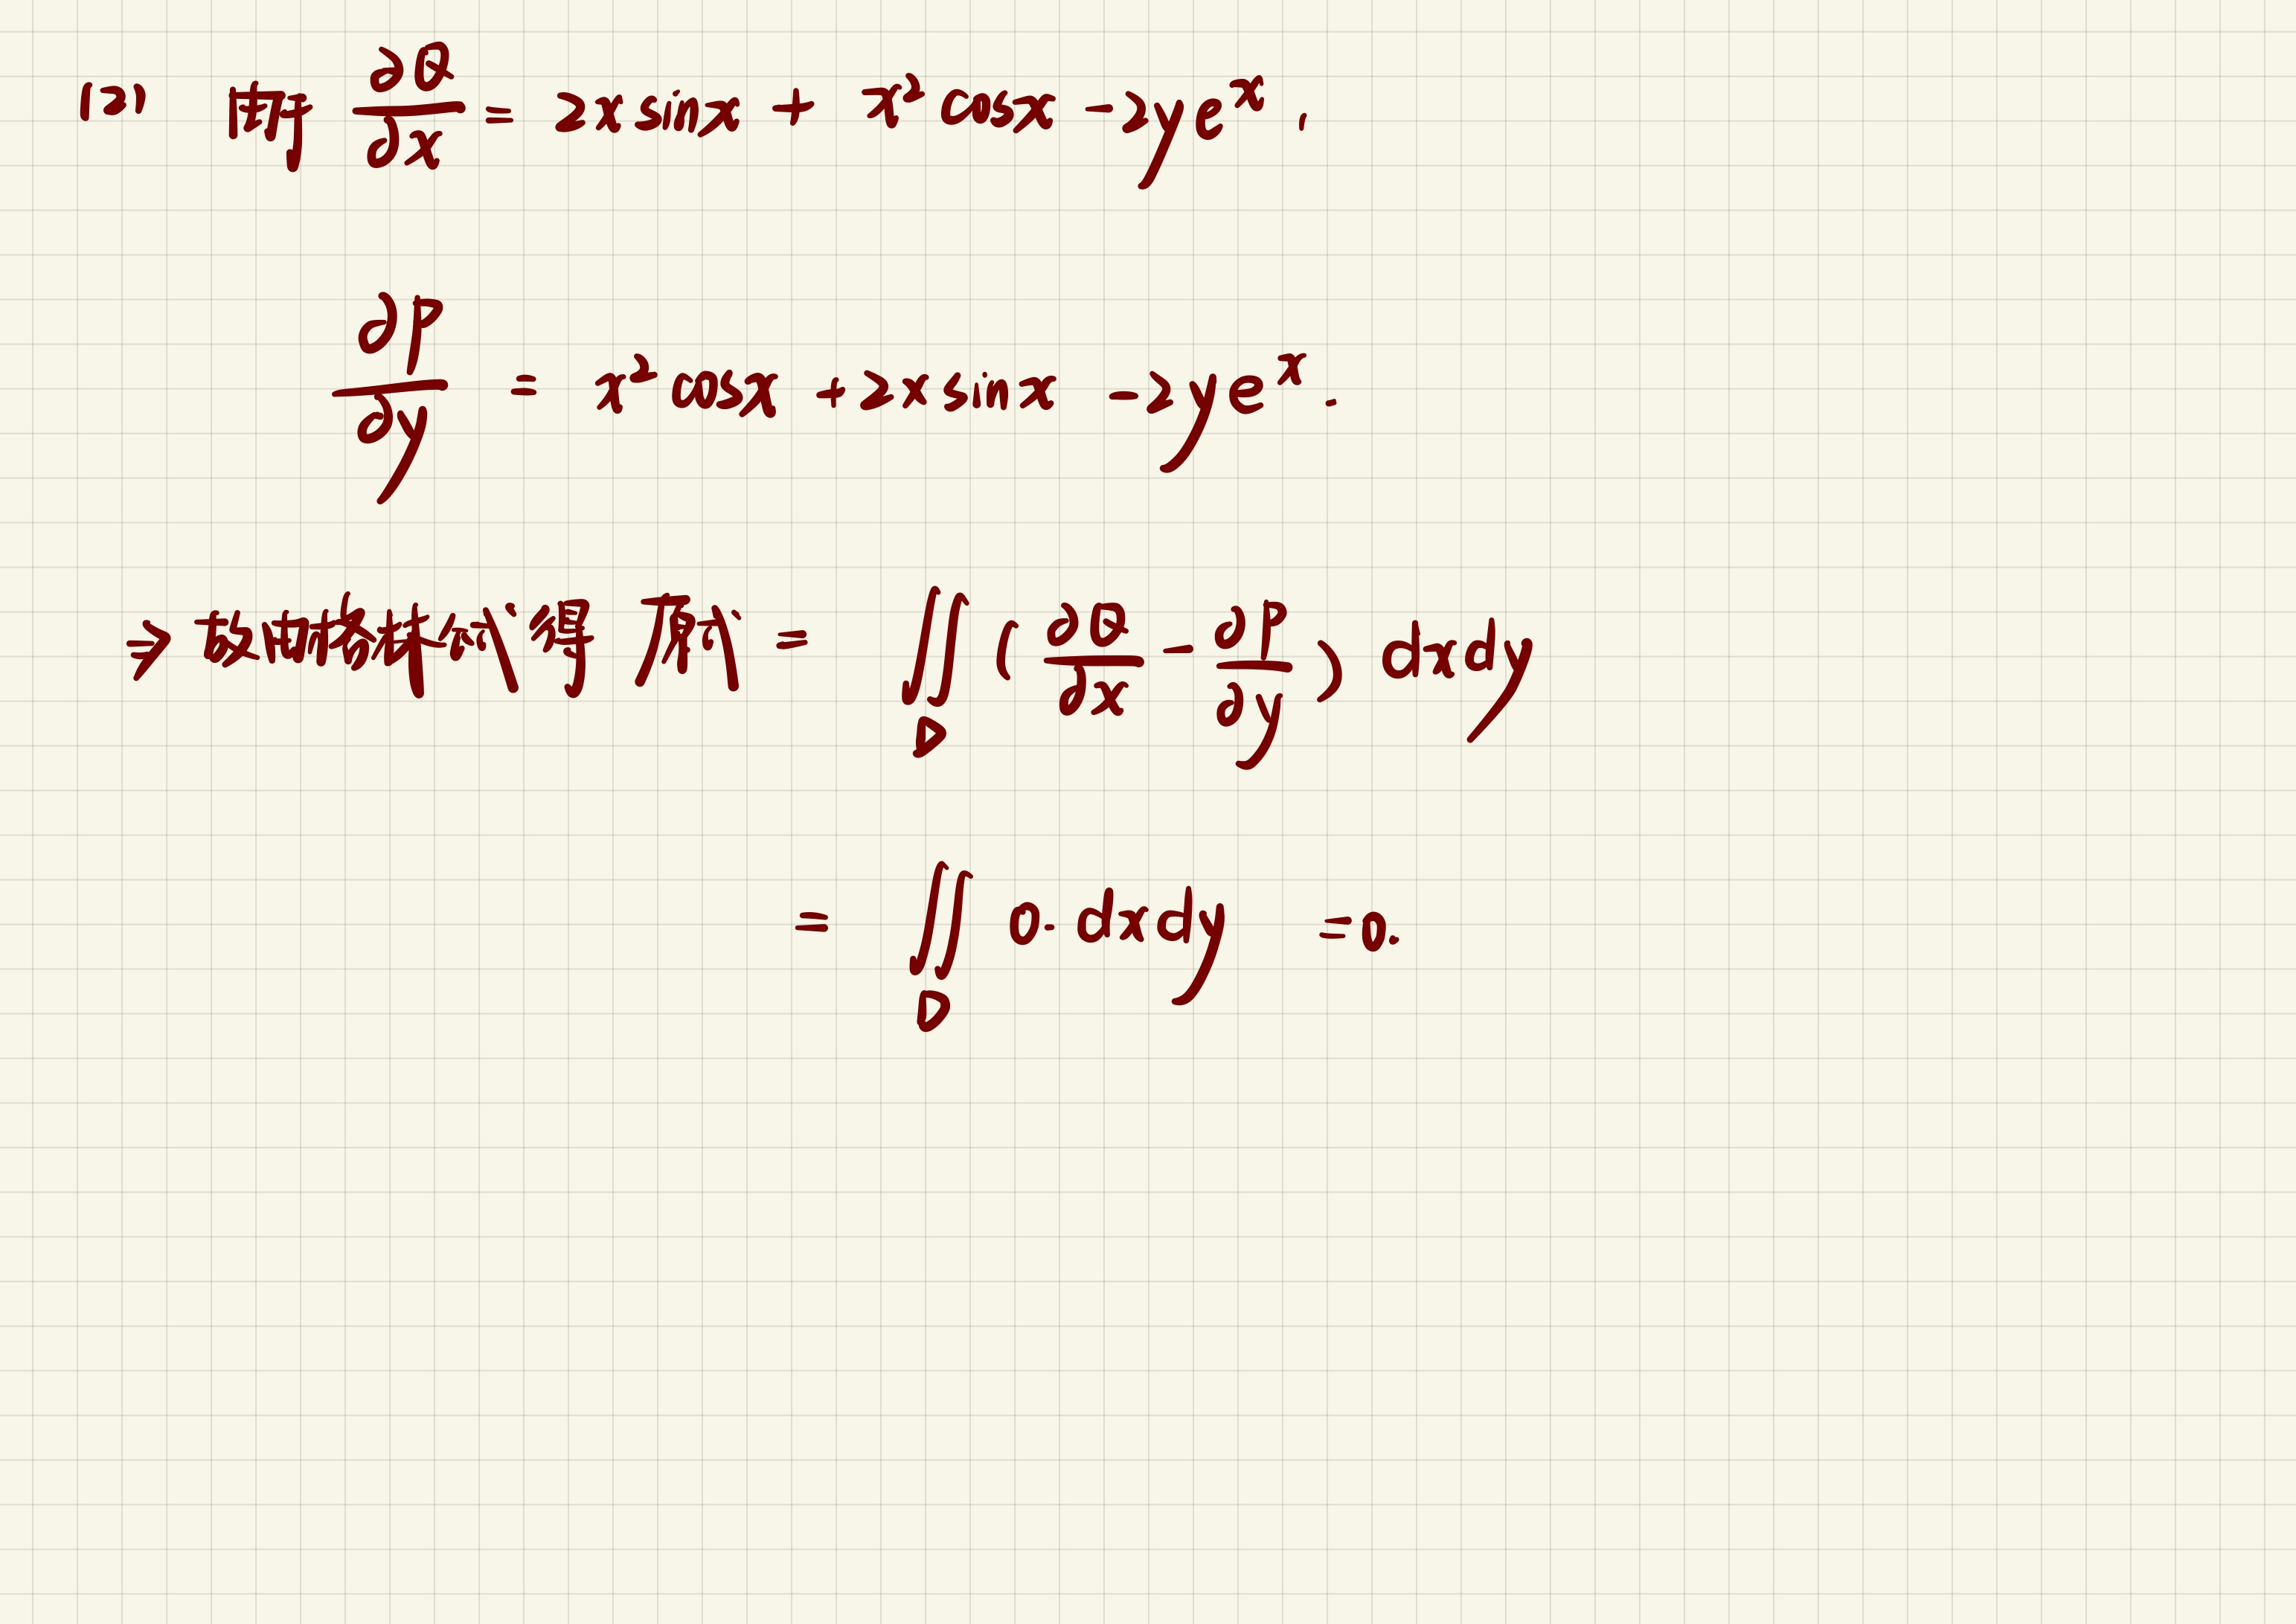 (2) 由于 ∂Q/∂x = 2x sinx + x² cosx - 2ye^x,
∂P/∂y = x² cosx + 2x sinx - 2ye^x.
⇒ 故由格林公式得 原式 = ∬_D (∂Q/∂x - ∂P/∂y) dxdy
= ∬_D 0·dxdy = 0.